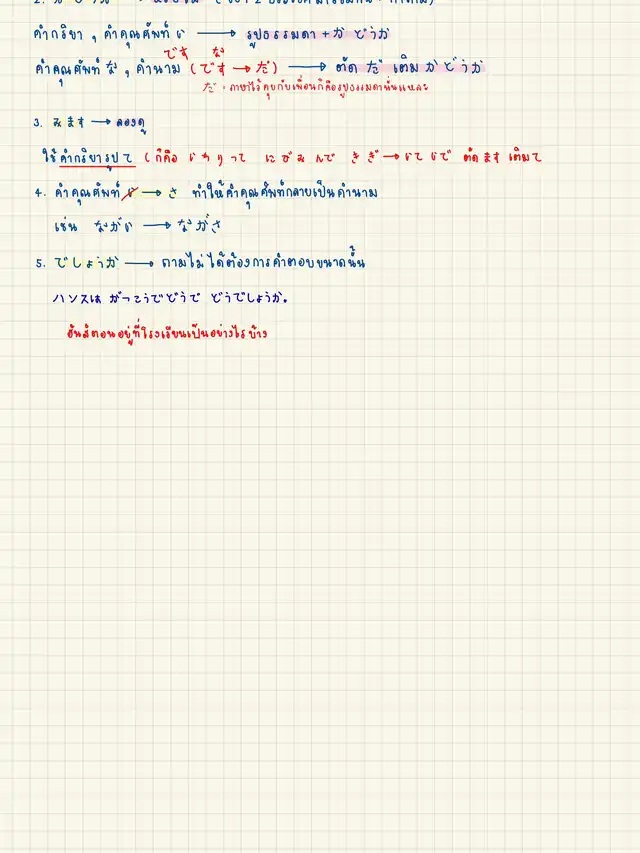 คำกริยา , คำคุณศัพท์ い → รูปธรรมดา + か どうか
です な
คำคุณศัพท์ な , คำนาม (です → だ) → ตัด だ เติม か どうか
だ = ภาษาไว้คุยกับเพื่อนก็คือรูปธรรมดานั่นแหละ
3. みます → ลองดู
ใช้คำกริยารูป て ( ก็คือ いちりって にびみんで きぎ → いていで ตัด ます เติม て
4. คำคุณศัพท์ い → さ ทำให้คำคุณศัพท์กลายเป็นคำนาม
เช่น ながい → ながさ
5. でしょうか → ถามไม่ได้ต้องการคำตอบขนาดนั้น
ハンスは がっこうでどうで どうでしょうか。
ฮันส์ตอนอยู่ที่โรงเรียนเป็นอย่างไรบ้าง